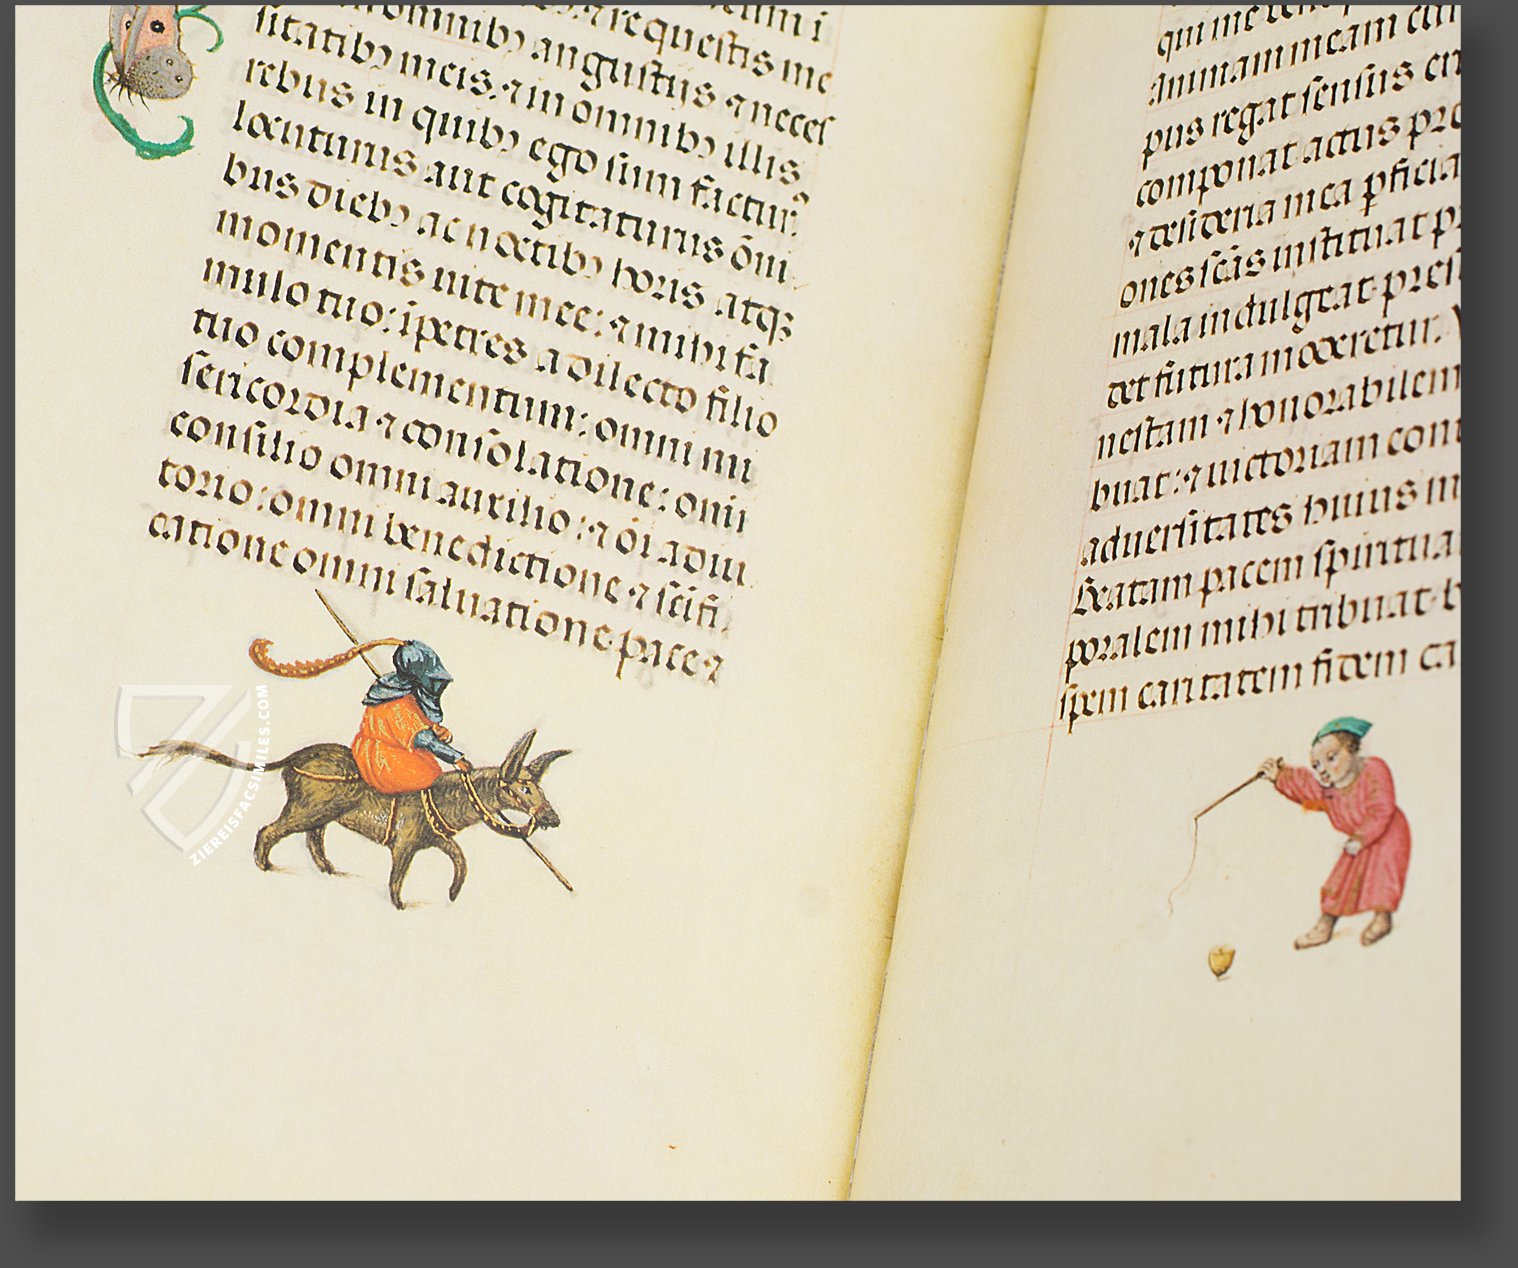 omnibꝫ angustijs ⁊ neces
sitatibꝫ meis. ⁊ in omnibꝫ illis
rebus in quibꝫ ego sum factur⁹
locuturus aut cogitaturus om̄i
bus diebꝫ ac noctibꝫ horis atqꝫ
momentis uite mee: ⁊ mihi fa
mulo tuo: ipetres a dilecto filio
tuo complementum: omni mi
sericordia ⁊ consolatione: omi
consilio omni auxilio: ⁊ oi adiu
torio: omni benedictione ⁊ scifi
catione omni saluatione pace ⁊
animam meam
pus regat sensus
componat actus
⁊ desideria mea pficia
ones scas instituat
mala indulgeat
det futura moderetur.
nestam ⁊ honorabilem
buat: ⁊ uictoriam
aduersitates huius
Beatam pacem spiritua
poralem mihi tribuat
spem caritatem fidem ca
ZIEREISFACSIMILES.COM